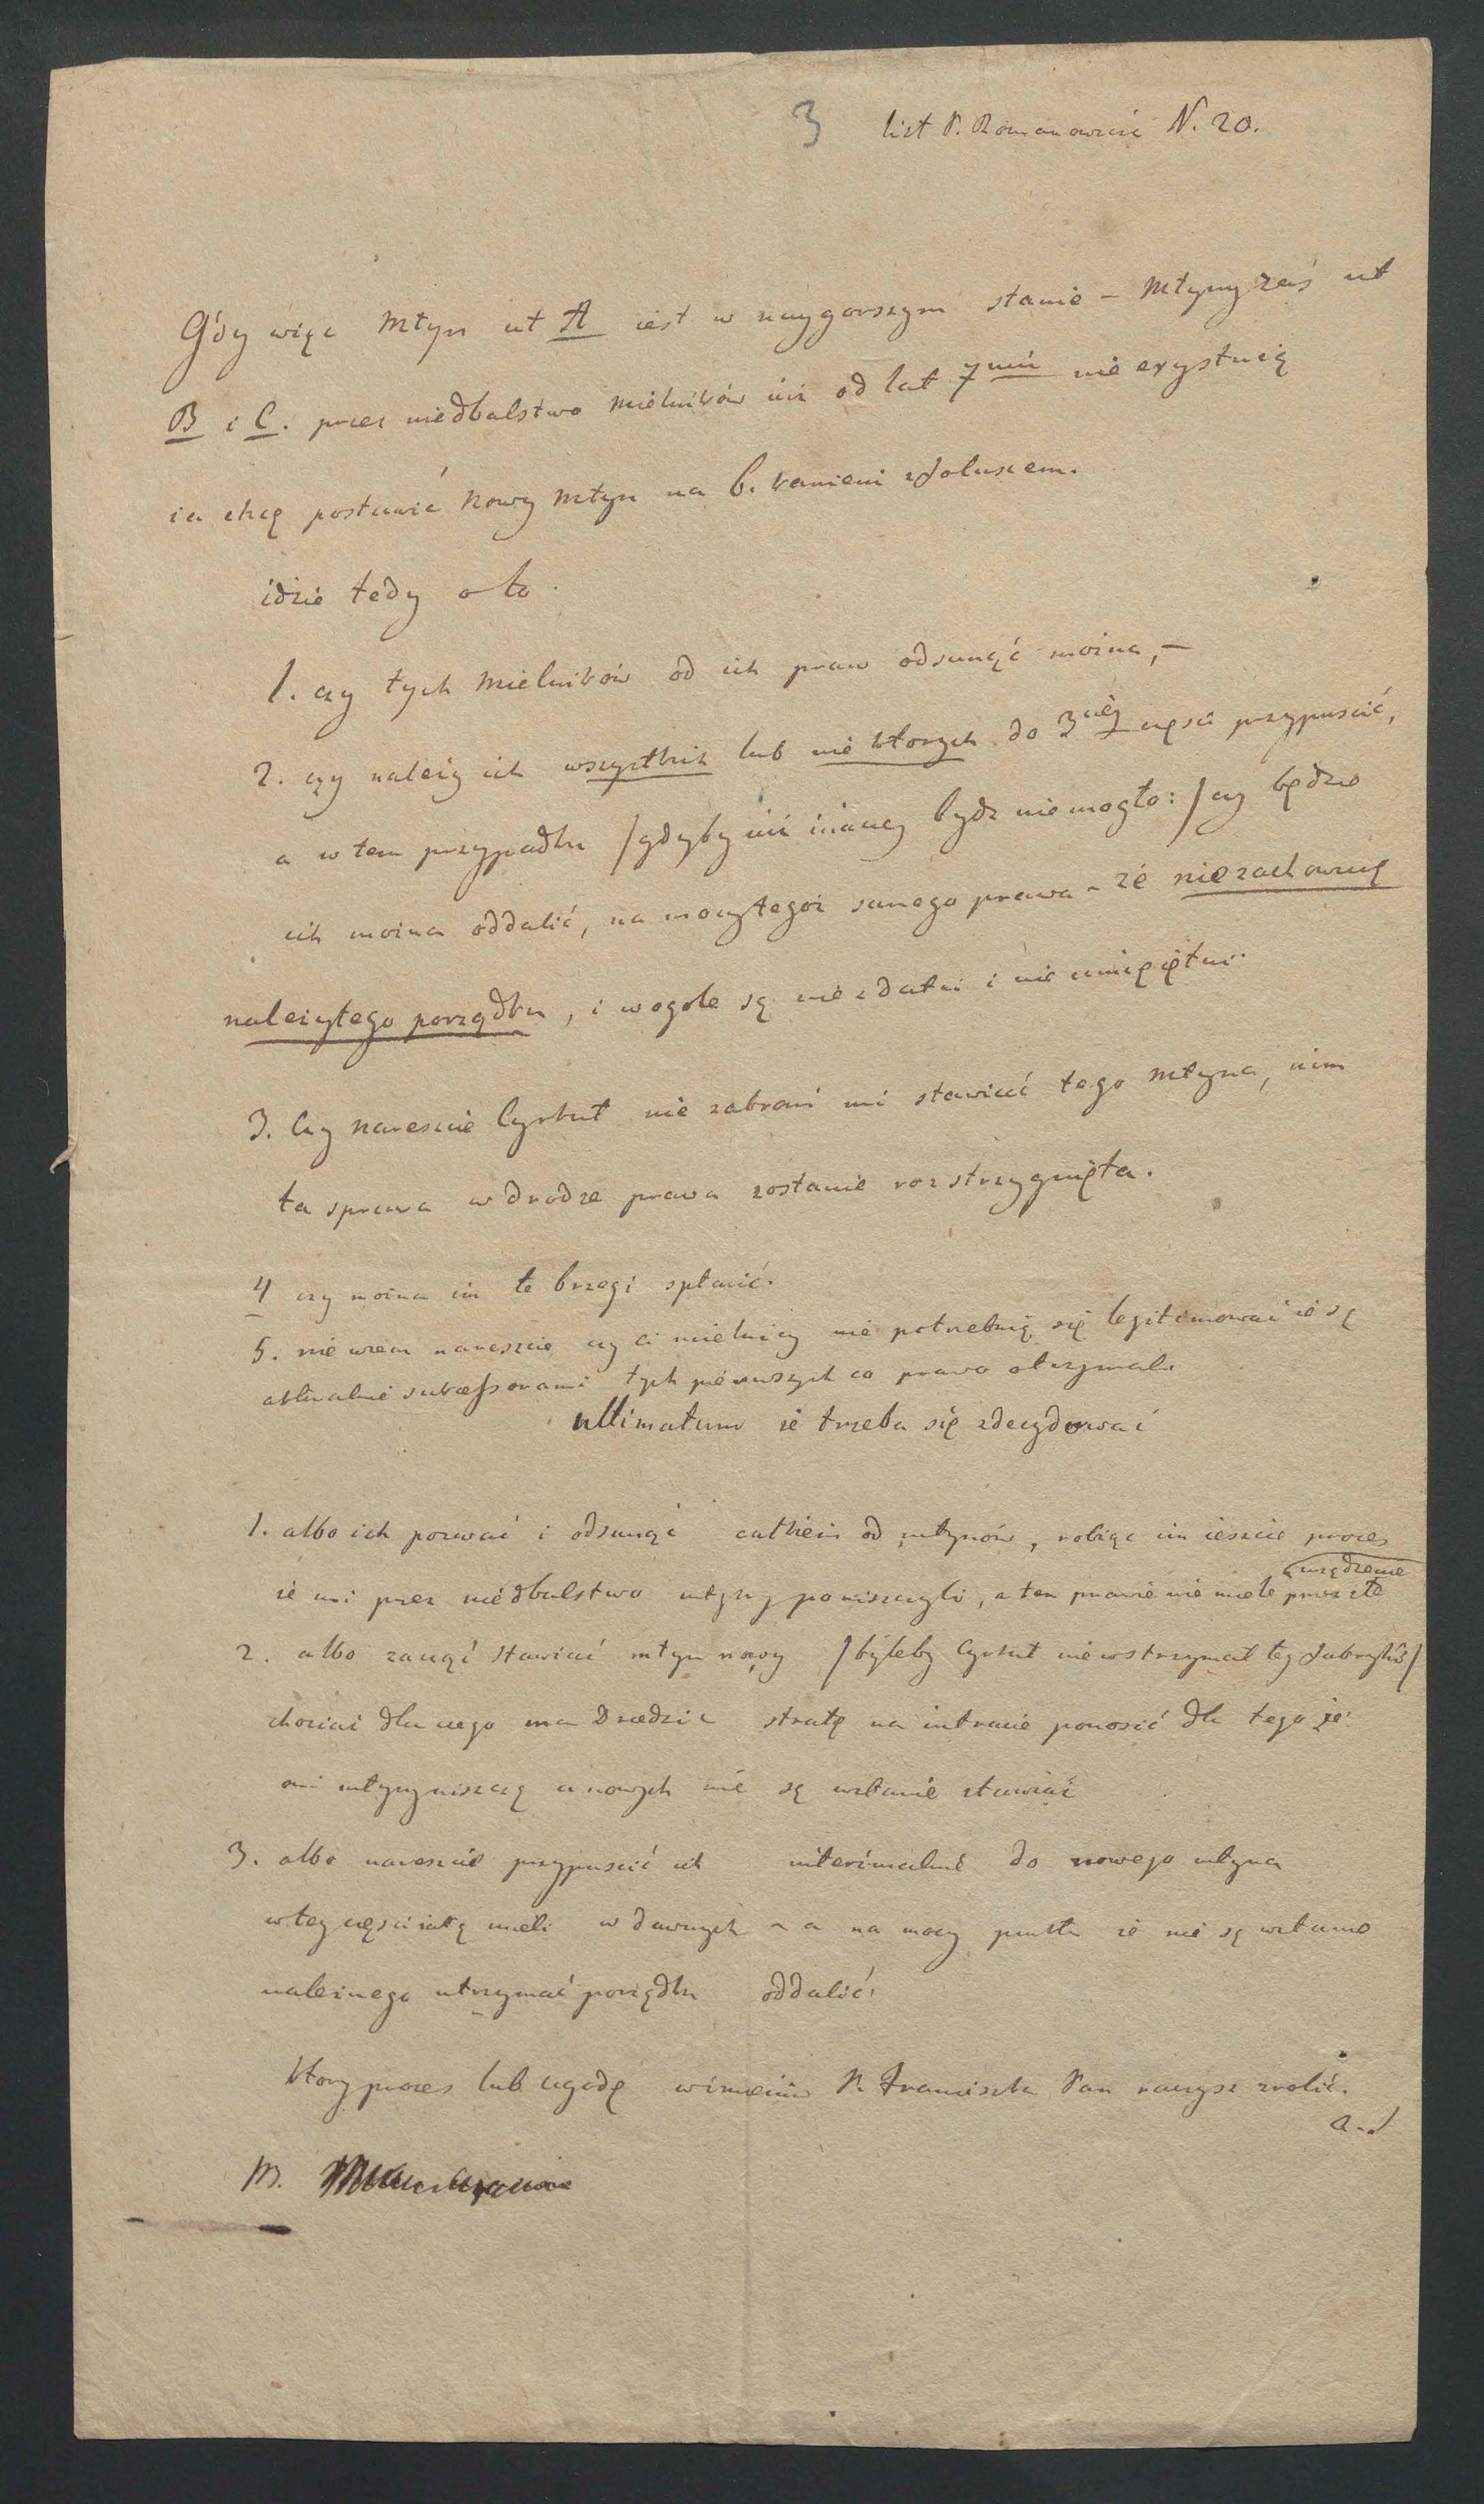 3 list P. Romanowicza N. 20.
Gdy więc Młyn ut A iest w naygorszym stanie – Młyny zaś ut
B i C. przez niedbalstwo Mielników iuż od lat 7miu nie exystuią
ia chcę postawić Nowy Młyn na 6. kamieni z foluszem.
idzie tedy o to
1. czy tych Mielników od ich praw odsunąć można, –
2. czy należy ich wszystkich lub nie ktorych do 3ciey części przypuscić,
a w tem przypadku /gdyby iuż inaczej bydz nie mogło:/ czy będzie
ich można oddalić, na mocy tegoż samego prawa – że niezachowuią
należytego porządku, i wogole są niezdatni i nie umieiętni.
3. Czy nareszcie Cyrkuł nie zabroni mi stawiać tego Młyna, nim
ta sprawa w drodze prawa zostanie rozstrzygnięta.
4 czy można im te brzegi spłacić.
5. nie wiem nareszcie czy ci mielnicy nie potrzebuią się legitimować że są
aktualnie sukcessorami tych pierwszych co prawo otrzymali
ultimatum że trzeba się zdecydować
1. albo ich pozwać i odsunąć całkiem od młynów, robiąc im ieszcze proces
że mi przez niedbalstwo młyny poniszczyli, a ten prawie nie miele przez złe
urządzenie
2. albo zacząć stawiać młyn nowy /byleby Cyrkuł nie wstrzymał tey fabryki/
chociaż dla czego ma Dziedzic stratę na intracie ponosić dla tego że
oni młyny niszczą a nowych nie są wstanie stawiać
3. albo nareszcie przypuscić ich interimalnie do nowego młyna
w tey części iaką mieli w dawnych – a na mocy punktu że nie są wstanie
należnego utrzymać porządku oddalić.
Ktory proces lub ugodę w imieniu P. Franciszka Pan raczysz zrobić.
M.